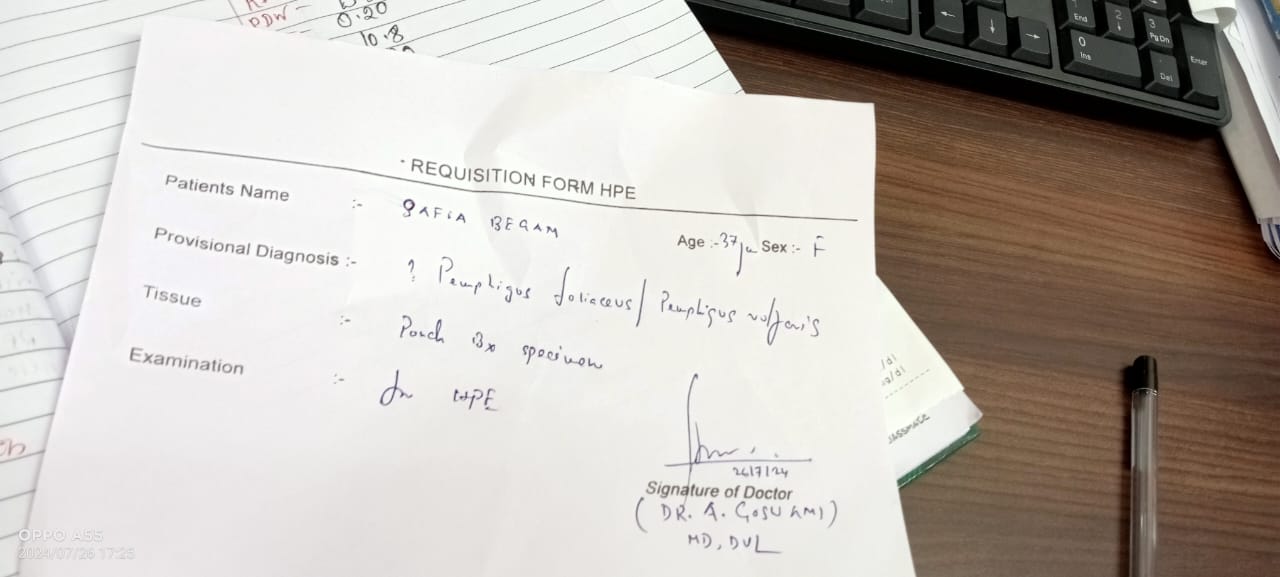 PDW -
0.20
10.8
End
2
3
Pg Dn
0
Ins
Del
Enter
REQUISITION FORM HPE
Patients Name :- SAFIA BEGAM
Age :- 37 yr Sex :- F
Provisional Diagnosis :- ? Pemphigus foliaceus / Pemphigus vulgaris
Tissue :- Punch Bx specimen
Examination :- for HPE
26/7/24
Signature of Doctor
(DR. A. GOSWAMI)
MD, DVL
classmate
OPPO A55
2024/07/26 17:25